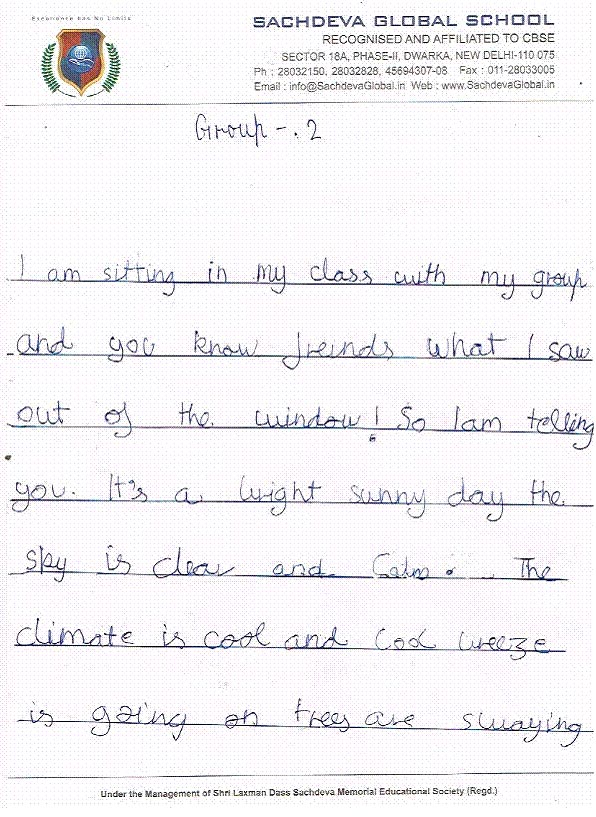 Excellence has No Limits
SACHDEVA GLOBAL SCHOOL
RECOGNISED AND AFFILIATED TO CBSE
SECTOR 18A, PHASE-II, DWARKA, NEW DELHI-110 075
Ph : 28032150, 28032828, 45694307-08 Fax : 011-28033005
Email : info@SachdevaGlobal.in Web : www.SachdevaGlobal.in
Group - . 2
I am sitting in my class with my group
and you know freinds what I saw
out of the window! So I am telling
you. It's a bright sunny day the
sky is clear and Calm . The
climate is cool and cool breeze
is going on trees are swaying
Under the Management of Shri Laxman Dass Sachdeva Memorial Educational Society (Regd.)